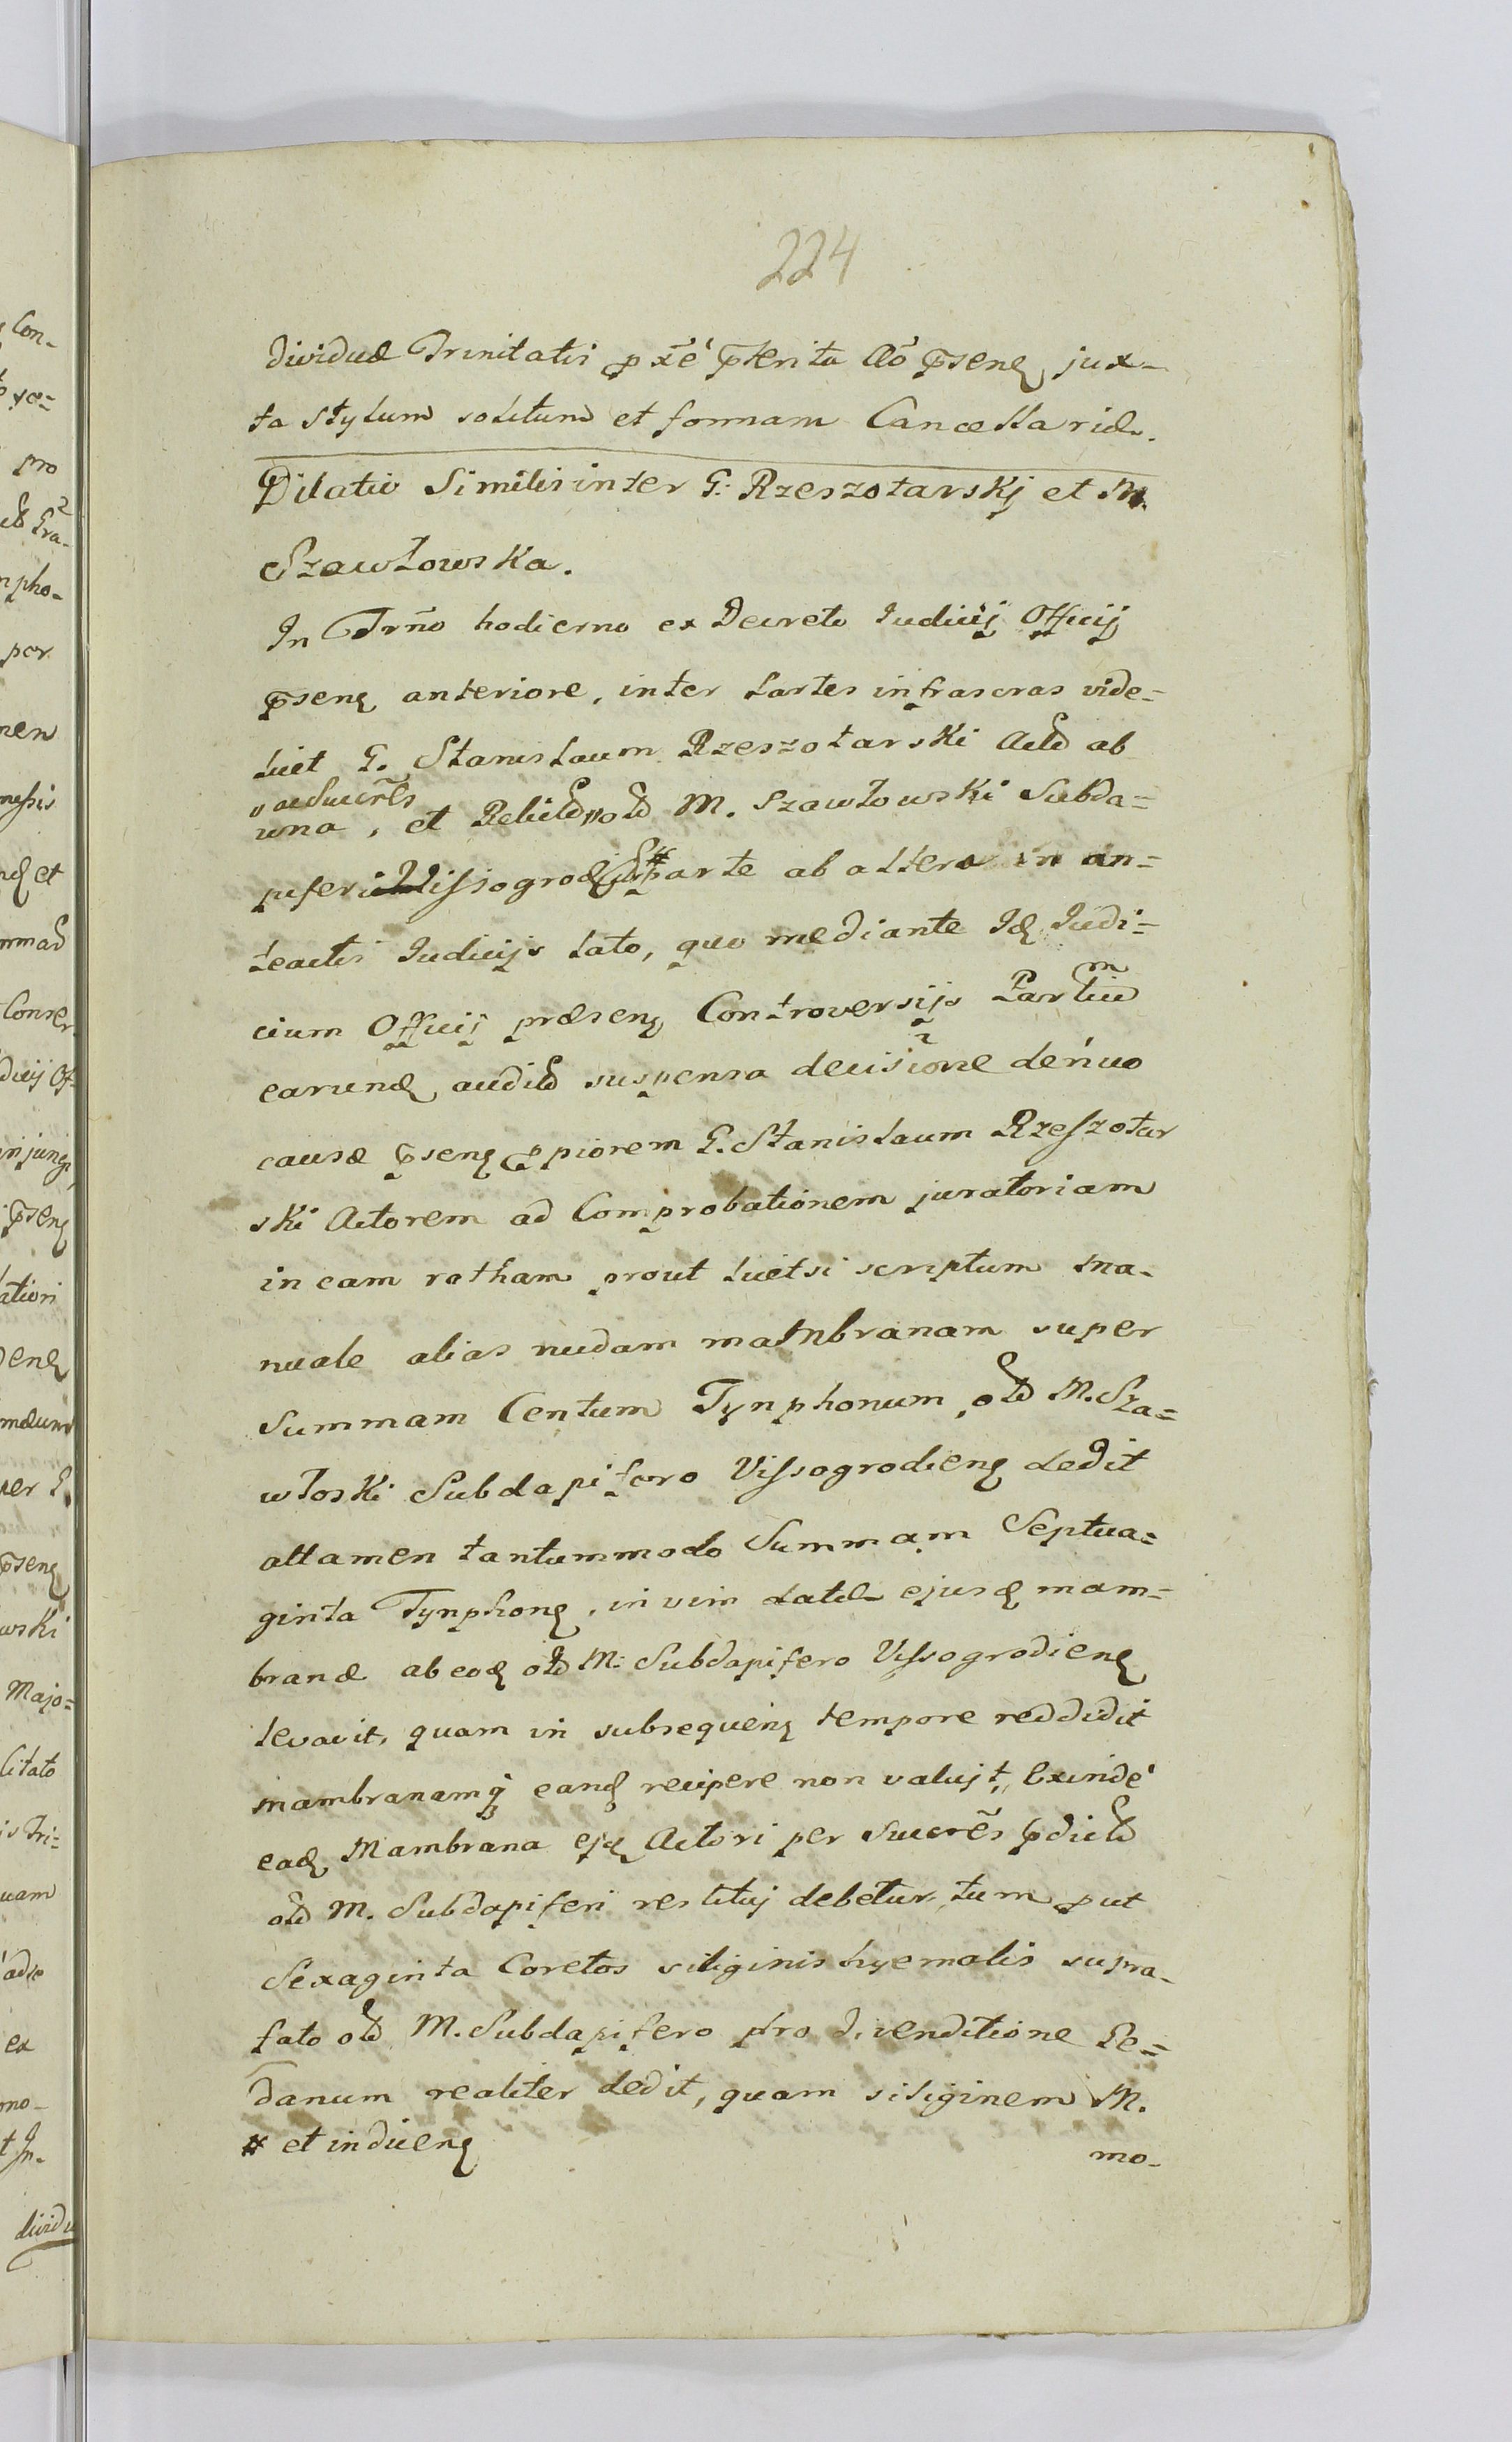 224
dividuæ Trinitatis p̄ xe p̄terita Aō p̄senꝫ jux-
ta stylum solitum et formam Cancellariæ.
Dilatio Similis inter G: Rzeszotarskj et M.
Szawłowska.
In Trn̄o hodierno ex Decreto Judicij Officij
p̄senꝫ anteriore, inter Partes infrascras vide=
licet G. Stanislaum Rzeszotarski Actō ab
una, et Relictō "ac Succr̄es olō M. Szawłowski Subda=
piferi Wissogrodꝫ # parte ab altera in an=
teactis Judicijs lato, quo mediante Jdꝫ Judi=
cium Officij præsenꝫ Controversijs Partium
earundꝫ auditō suspensa decisione denuo
causæ p̄senꝫ p̄piorem G. Stanislaum Rzeszotar
ski Actorem ad Comprobationem juratoriam
in eam rotham prout licet si scriptum ma-
nuale alias nudam mambranam super
Summam Centum Tynphonum olō M. Sza=
włoski Subdapifero Vissogrodienꝫ dedit
attamen tantummodo Summam Septua=
ginta Tynphonꝫ, in vim datæ ejusdꝫ mam=
branæ ab eodꝫ olō M: Subdapifero Vissogrodienꝫ
levavit, quam in subsequenꝫ tempore reddidit
mambranamq̨ eandꝫ recipere non valujt, Exinde
eadꝫ Mambrana ejdꝫ Actori per Succr̄es p̄dictō
olō M. Subdapiferi restituj debetur, tum p̄ut
Sexaginta Coretos siliginis hyemalis supra-
fato olō M. Subdapifero pro divenditione Ge=
danum realiter dedit, quam siliginem M.
# et indicenꝫ
mo-